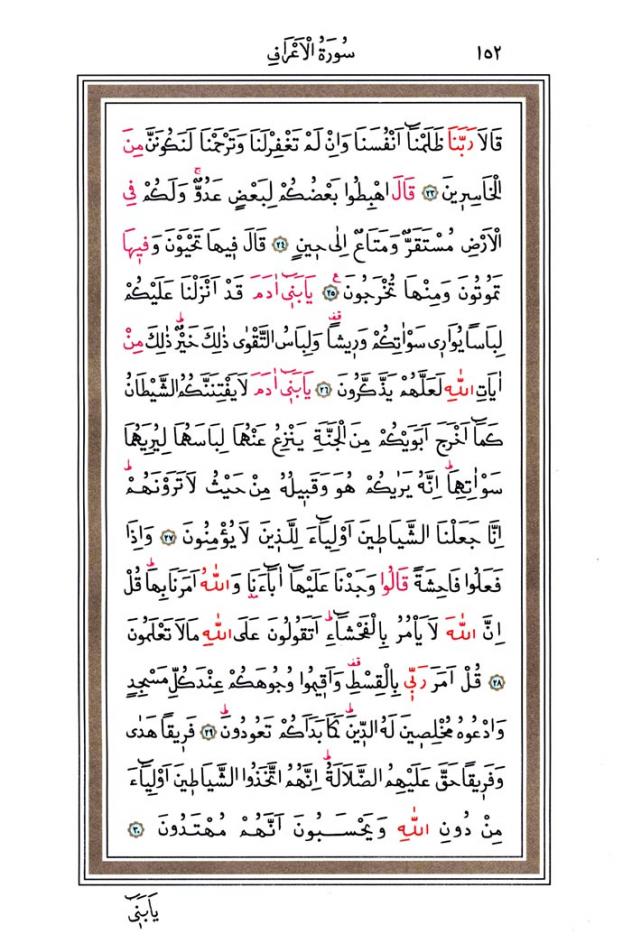 ١٥٢ سُورَةُ الْاَعْرَافِ
قَالَا رَبَّنَا ظَلَمْنَٓا اَنْفُسَنَا وَاِنْ لَمْ تَغْفِرْلَنَا وَتَرْحَمْنَا لَنَكُونَنَّ مِنَ
الْخَاسِر۪ينَ ﴿٢٣﴾ قَالَ اهْبِطُوا بَعْضُكُمْ لِبَعْضٍ عَدُوٌّۚ وَلَكُمْ فِي
الْاَرْضِ مُسْتَقَرٌّ وَمَتَاعٌ اِلٰى ح۪ينٍ ﴿٢٤﴾ قَالَ ف۪يهَا تَحْيَوْنَ وَف۪يهَا
تَمُوتُونَ وَمِنْهَا تُخْرَجُونَ ﴿٢٥﴾ يَابَن۪ٓي اٰدَمَ قَدْ اَنْزَلْنَا عَلَيْكُمْ
لِبَاسًا يُوَار۪ي سَوْاٰتِكُمْ وَر۪يشًاۜ وَلِبَاسُ التَّقْوٰى ذٰلِكَ خَيْرٌۜ ذٰلِكَ مِنْ
اٰيَاتِ اللّٰهِ لَعَلَّهُمْ يَذَّكَّرُونَ ﴿٢٦﴾ يَابَن۪ٓي اٰدَمَ لَا يَفْتِنَنَّكُمُ الشَّيْطَانُ
كَمَٓا اَخْرَجَ اَبَوَيْكُمْ مِنَ الْجَنَّةِ يَنْزِعُ عَنْهُمَا لِبَاسَهُمَا لِيُرِيَهُمَا
سَوْاٰتِهِمَاۜ اِنَّهُ يَرٰيكُمْ هُوَ وَقَب۪يلُهُ مِنْ حَيْثُ لَا تَرَوْنَهُمْۜ
اِنَّا جَعَلْنَا الشَّيَاط۪ينَ اَوْلِيَٓاءَ لِلَّذ۪ينَ لَا يُؤْمِنُونَ ﴿٢٧﴾ وَاِذَا
فَعَلُوا فَاحِشَةً قَالُوا وَجَدْنَا عَلَيْهَٓا اٰبَٓاءَنَا وَاللّٰهُ اَمَرَنَا بِهَاۜ قُلْ
اِنَّ اللّٰهَ لَا يَأْمُرُ بِالْفَحْشَٓاءِۜ اَتَقُولُونَ عَلَى اللّٰهِ مَا لَا تَعْلَمُونَ
﴿٢٨﴾ قُلْ اَمَرَ رَبّ۪ي بِالْقِسْطِ وَاَق۪يمُوا وُجُوهَكُمْ عِنْدَ كُلِّ مَسْجِدٍ
وَادْعُوهُ مُخْلِص۪ينَ لَهُ الدّ۪ينَۜ كَمَا بَدَاَكُمْ تَعُودُونَۜ ﴿٢٩﴾ فَر۪يقًا هَدٰى
وَفَر۪يقًا حَقَّ عَلَيْهِمُ الضَّلَالَةُۜ اِنَّهُمُ اتَّخَذُوا الشَّيَاط۪ينَ اَوْلِيَٓاءَ
مِنْ دُونِ اللّٰهِ وَيَحْسَبُونَ اَنَّهُمْ مُهْتَدُونَ ﴿٣٠﴾
يَابَن۪ٓي